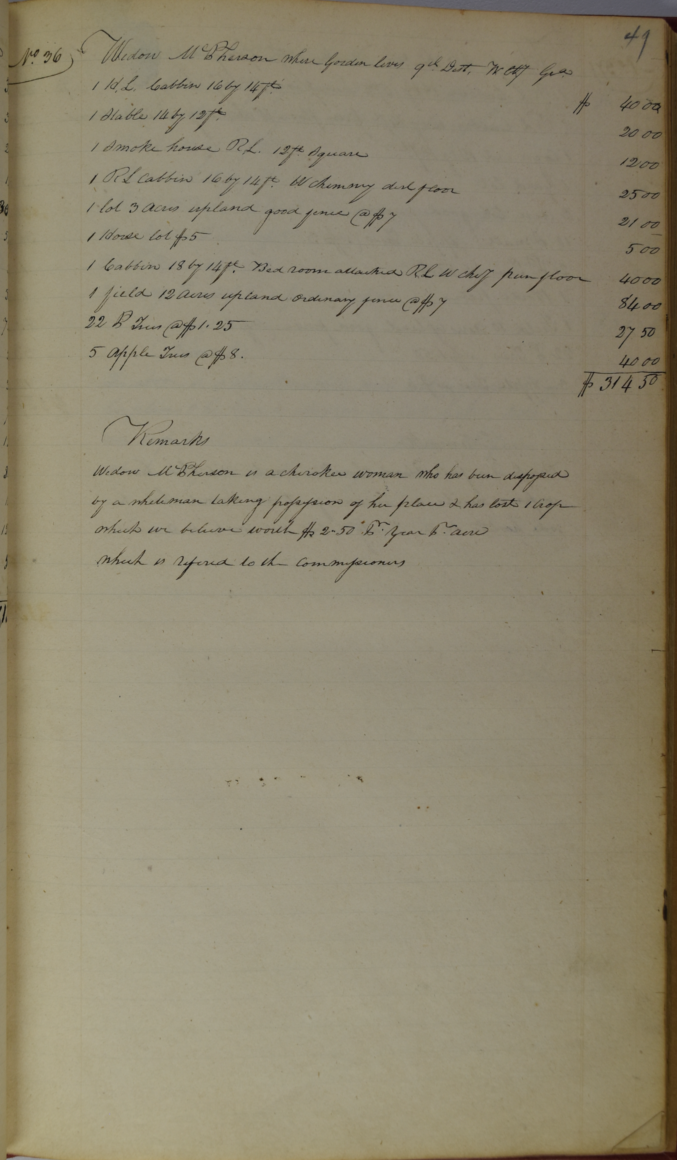 49
No. 36 Widow McPherson where Gorden lives 9th Dist.
1 H.L. Cabbin 16 by 14ft $ 40 00
1 Stable 14 by 12ft 20 00
1 Smoke house R.L. 12ft Square 12 00
1 R L Cabbin 16 by 14ft W chimmy dirt floor 25 00
1 lot 3 Acres upland good fence @ $7 21 00
1 House lot $5 5 00
1 Cabbin 18 by 14ft Bed room attached R L W Chy pun floor 40 00
1 field 12 Acres upland ordinary fence @ $7 84 00
22 P Trees @ $1.25 27 50
5 Apple Trees @ $8. 40 00
$ 314 50
Remarks
Widow McPherson is a cherokee woman who has been disposesd
by a whiteman taking possession of her place & has lost 1 Crop
which we believe worth $2-50 Pr. Year Pr. acre
which is refered to the Commissioners